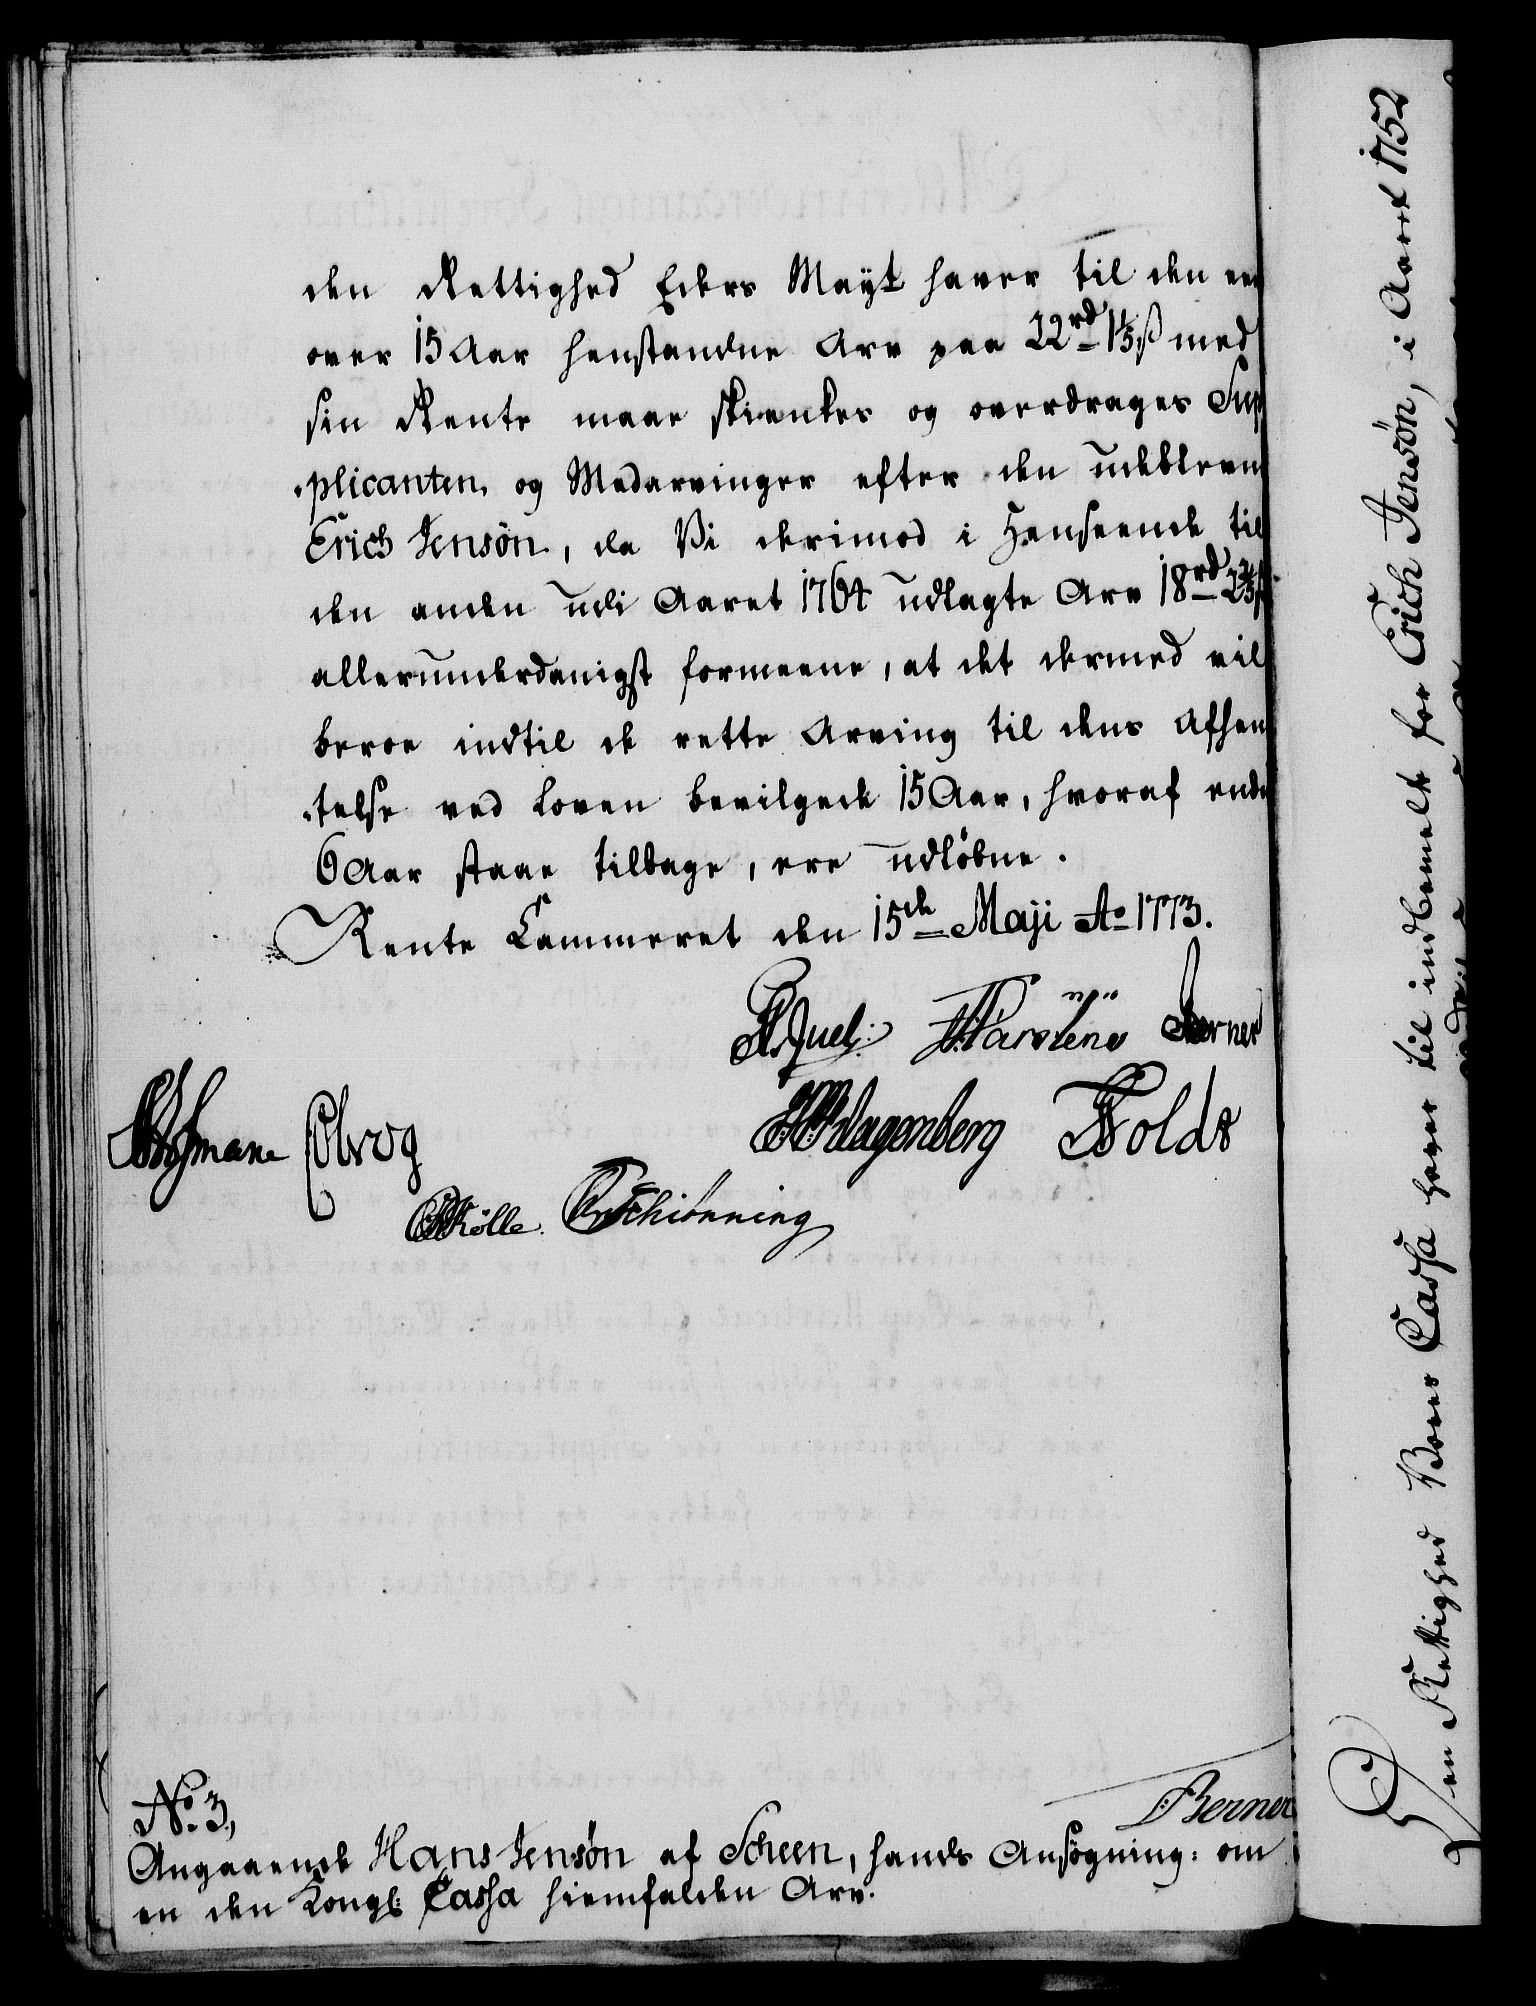 den Rettighed Eders Mayt haver til den
over 15 Aar henstandne Arv paa 22rd 1 1/5 ß med
sin Rente maae skienkes og overdrages Sup
plicanten og Medarvinger efter den udeblevne
Erich Jensøn, da Vi derimod i Henseende til
den anden udi Aaret 1764 udlagte Arv 18rd
allerunderdanigst formeene, at det dermed vil
beroe indtil de rette Arving til dens Afhen
telse ved Loven bevilgede 15 Aar, hvoraf endnu
6 Aar staae tilbage, ere udløbne.
Rente Cammeret den 15de Maji Ao 1773.
Juel: Karstens Berner
Klagenberg Holdt
Schiønning
Berner
No 3,
Angaaende Hans Jensøn af Scheen, hands Ansøgning: om
en den Kongl: Cassa hiemfalden Arv.
Den Rettighed Vores Cassa haver til indbemelte for Erich Jensøn, i Aaret 1752